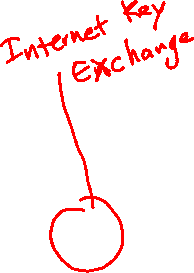 Internet Key
Exchange